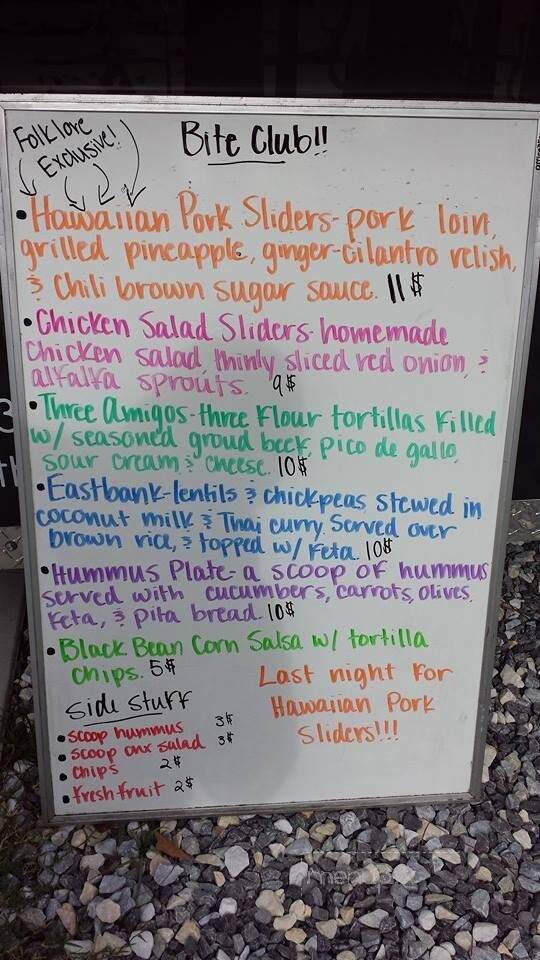 Folklore
Exclusive!
Bite Club!!
• Hawaiian Pork Sliders- pork loin,
grilled pineapple, ginger-cilantro relish,
& Chili brown sugar sauce. 11$
• Chicken Salad Sliders- homemade
Chicken salad, thinly sliced red onion, &
alfalfa sprouts. 9$
• Three Amigos- three flour tortillas filled
w/ seasoned groud beef, pico de gallo,
sour cream & cheese. 10$
• Eastbank- lentils & chickpeas stewed in
coconut milk & Thai curry. Served over
brown rice, & topped w/ feta. 10$
• Hummus Plate- a scoop of hummus
served with cucumbers, carrots, olives,
feta, & pita bread. 10$
• Black Bean Corn Salsa w/ tortilla
chips. 5$
Last night for
Hawaiian Pork
Sliders!!!
Side Stuff
• scoop hummus 3$
• scoop chx salad 3$
• chips 2$
• fresh fruit 2$